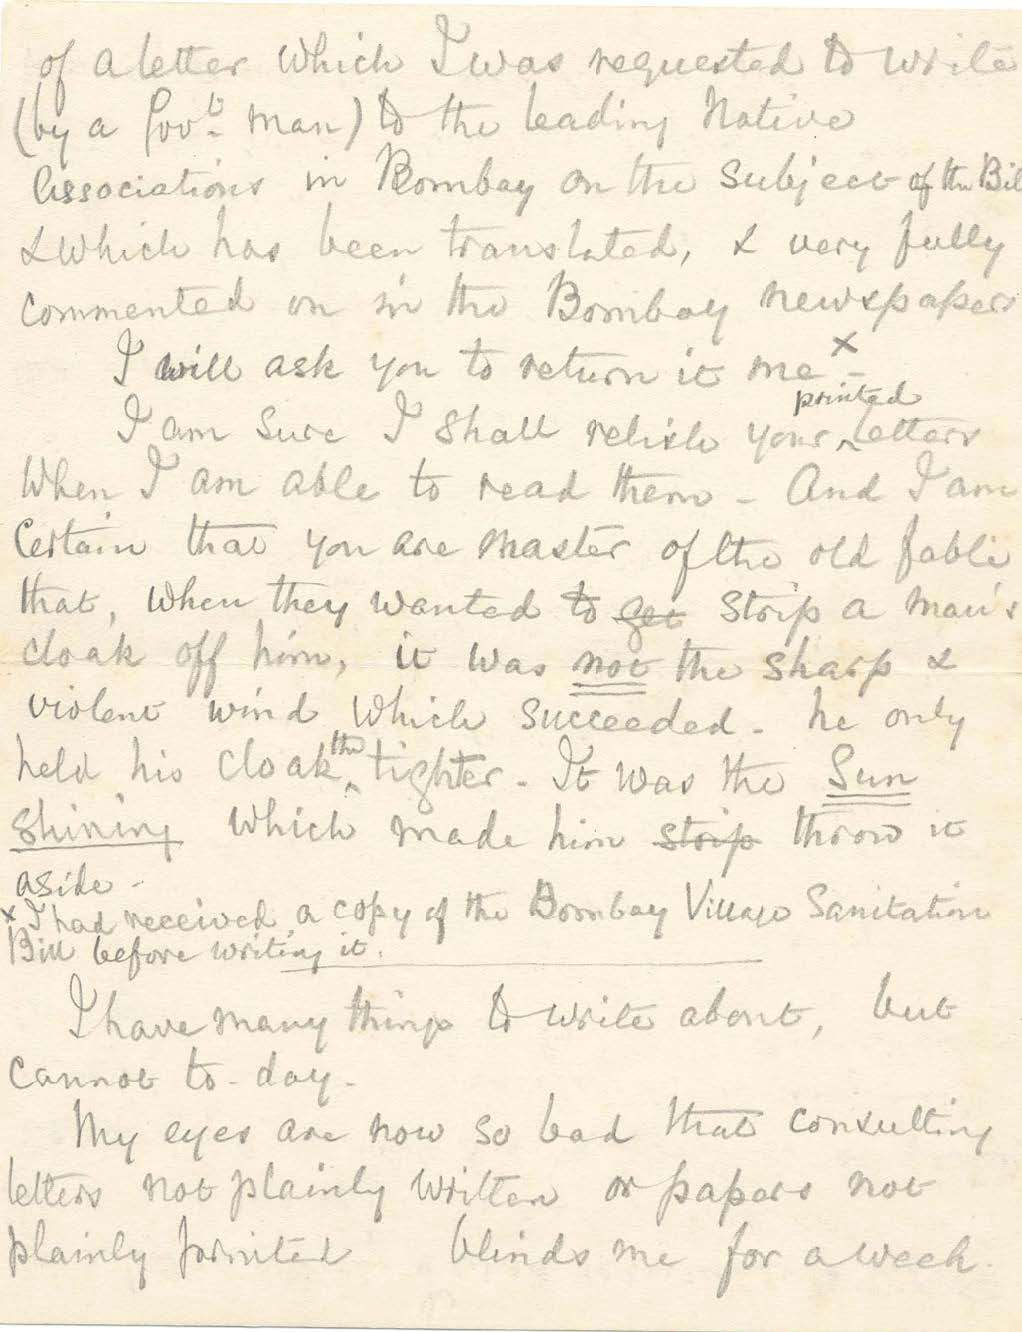 of a letter which I was requested to write
(by a Govt. man) to the leading Native
Associations in Bombay on the subject of the Bill
& which has been translated, & very fully
commented on in the Bombay newspapers
I will ask you to return it me x -
printed
I am sure I shall relish your ^ letters
when I am able to read them - And I am
certain that you are master of the old fable
that, when they wanted to get strip a man's
cloak off him, it was not the sharp &
violent wind which succeeded - he only
the
held his cloak ^ tighter - It was the Sun
shining which made him strip throw it
aside -
x I had received a copy of the Bombay Village Sanitation
Bill before writing it.
I have many things to write about, but
cannot to-day -
My eyes are now so bad that consulting
letters not plainly written or papers not
plainly printed blinds me for a week.